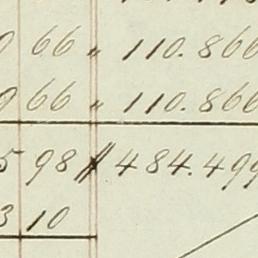 0 66 " 110.866
0 66 " 110.866
5 98 # 484.499
3 10